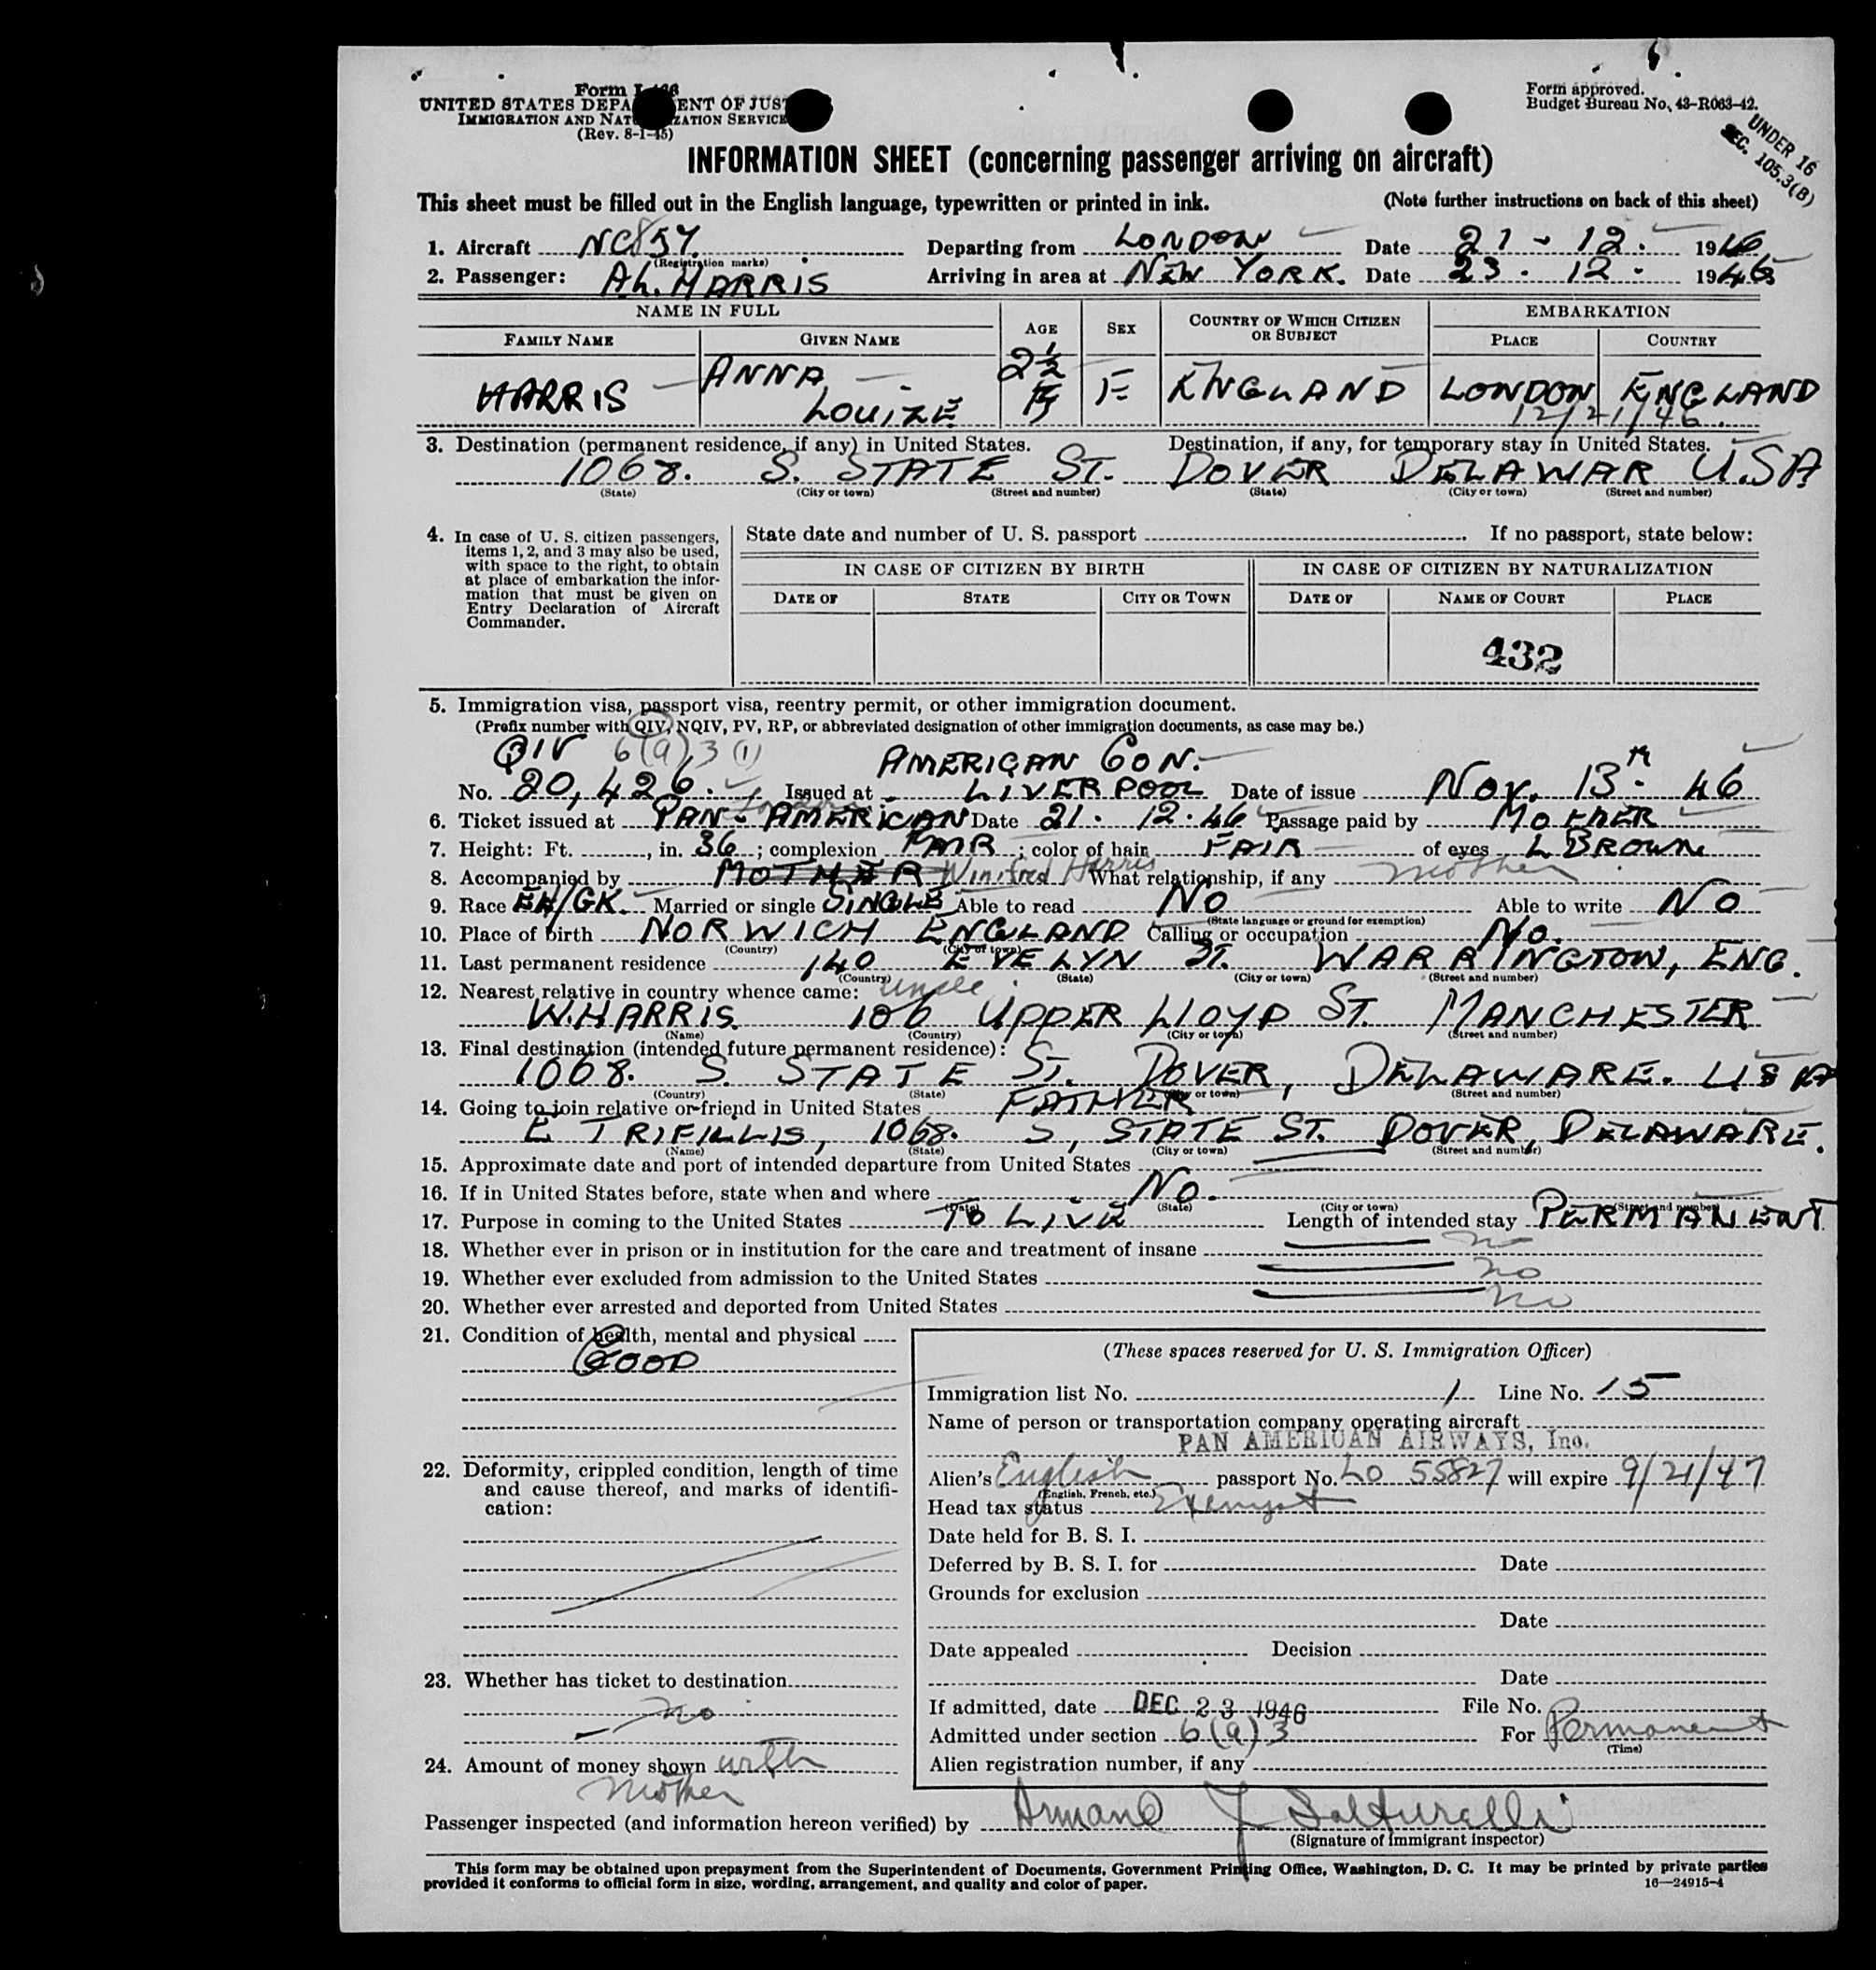 Form I-466
UNITED STATES DEPARTMENT OF JUSTICE
IMMIGRATION AND NATURALIZATION SERVICE
(Rev. 8-1-45)
Form approved.
Budget Bureau No. 43-R063-42.
UNDER 16
SEC. 105.3(B)
INFORMATION SHEET (concerning passenger arriving on aircraft)
This sheet must be filled out in the English language, typewritten or printed in ink. (Note further instructions on back of this sheet)
1. Aircraft NC857. Departing from LONDON Date 21 - 12. 1946
(Registration marks)
2. Passenger: AL. HARRIS Arriving in area at NEW YORK. Date 23. 12. 1946
NAME IN FULL AGE SEX COUNTRY OF WHICH CITIZEN OR SUBJECT EMBARKATION
FAMILY NAME GIVEN NAME PLACE COUNTRY
HARRIS ANNA LOUIZE 2½ F ENGLAND LONDON ENGLAND
12/21/46
3. Destination (permanent residence, if any) in United States. Destination, if any, for temporary stay in United States.
1068. S. STATE ST. DOVER DELAWAR U.S.A
(State) (City or town) (Street and number) (State) (City or town) (Street and number)
4. In case of U. S. citizen passengers, items 1, 2, and 3 may also be used, with space to the right, to obtain at place of embarkation the information that must be given on Entry Declaration of Aircraft Commander.
State date and number of U. S. passport If no passport, state below:
IN CASE OF CITIZEN BY BIRTH IN CASE OF CITIZEN BY NATURALIZATION
DATE OF STATE CITY OR TOWN DATE OF NAME OF COURT PLACE
432
5. Immigration visa, passport visa, reentry permit, or other immigration document.
(Prefix number with QIV, NQIV, PV, RP, or abbreviated designation of other immigration documents, as case may be.)
QIV 6(a)3 (1) AMERICAN CON.
No. 20,426. Issued at LIVERPOOL Date of issue NOV. 13th 46
6. Ticket issued at PAN-AMERICAN London Date 21. 12. 46 Passage paid by MOTHER
7. Height: Ft. , in. 36; complexion FAIR; color of hair FAIR of eyes L BROWN
8. Accompanied by MOTHER Winifred Harris What relationship, if any mother
9. Race EN/GK. Married or single SINGLE Able to read NO Able to write NO
(State language or ground for exemption)
10. Place of birth NORWICH ENGLAND Calling or occupation No.
(Country) (City or town)
11. Last permanent residence 140 EVELYN ST. WARRINGTON, ENG.
(Country) (State) (City or town) (Street and number)
12. Nearest relative in country whence came: uncle
W. HARRIS. 106 UPPER LLOYD ST. MANCHESTER
(Name) (Country) (City or town) (Street and number)
13. Final destination (intended future permanent residence):
1068. S. STATE ST. DOVER, DELAWARE. USA
(Country) (State) (City or town) (Street and number)
14. Going to join relative or friend in United States FATHER
E TRIFILLIS, 1068. S, STATE ST. DOVER, DELAWARE.
(Name) (State) (City or town) (Street and number)
15. Approximate date and port of intended departure from United States
16. If in United States before, state when and where No.
(Date) (State) (City or town) (Street and number)
17. Purpose in coming to the United States TO LIVE Length of intended stay PERMANENT
18. Whether ever in prison or in institution for the care and treatment of insane no
19. Whether ever excluded from admission to the United States no
20. Whether ever arrested and deported from United States no
21. Condition of health, mental and physical
GOOD
22. Deformity, crippled condition, length of time and cause thereof, and marks of identification:
23. Whether has ticket to destination
no
24. Amount of money shown with
mother
(These spaces reserved for U. S. Immigration Officer)
Immigration list No. 1 Line No. 15
Name of person or transportation company operating aircraft
PAN AMERICAN AIRWAYS, Inc.
Alien's English passport No. LO 55827 will expire 9/21/47
(English, French, etc.)
Head tax status Exempt
Date held for B. S. I.
Deferred by B. S. I. for Date
Grounds for exclusion
Date
Date appealed Decision
Date
If admitted, date DEC 23 1946 File No.
Admitted under section 6(a)3 For Permanent
(Time)
Alien registration number, if any
Passenger inspected (and information hereon verified) by Armand J
(Signature of Immigrant Inspector)
This form may be obtained upon prepayment from the Superintendent of Documents, Government Printing Office, Washington, D. C. It may be printed by private parties
provided it conforms to official form in size, wording, arrangement, and quality and color of paper. 16—24915-4